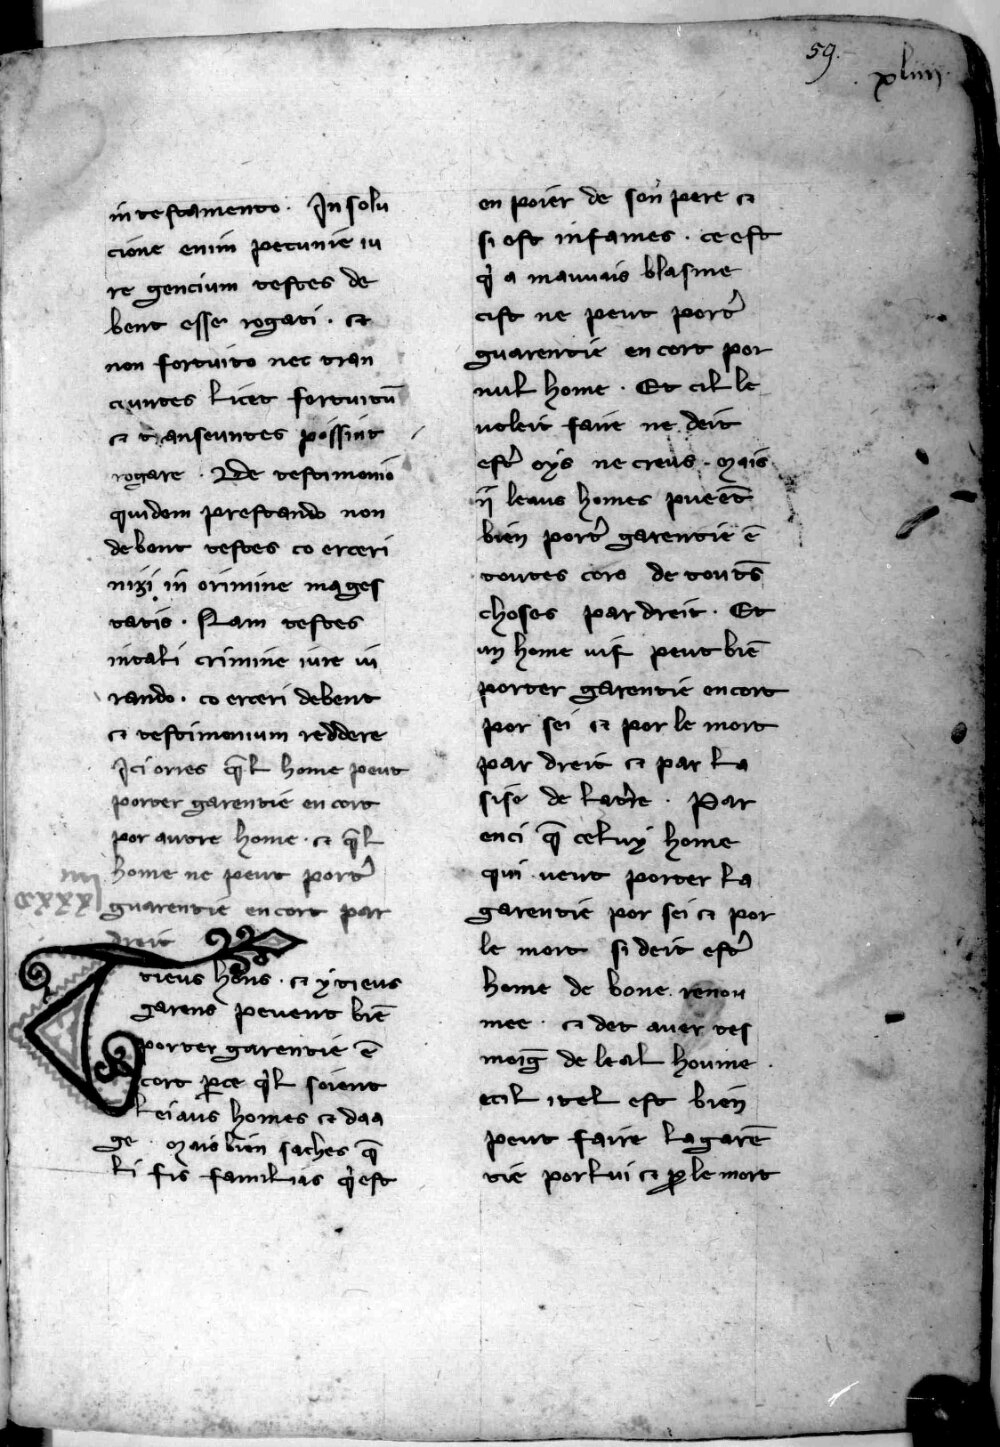 59.
xliiij
in testamento. In solu
cione enim pecunie iu
re gencium testes de
bent esse rogati. et
non fortuito nec tran
ciuntes licet fortuitū
et transeuntes possint
rogare. De testimonio
quidem prestando non
debent testes co erceri
nisi in crimine mages
tatis. Nam testes
intali crimine iure iu
rando. co erceri debent
et testimonium reddere
Ici orres q̄l home peut
porter garentie en cort
por autre home. et q̄l
home ne peut port̉
guarentie en cort par
dreit
tieus hōns. et ytieus
garens peuent biē
porter garentie ē
cort p̱ce q̉l soient
leiaus homes et daa
ge. Mais bien saches q̄
li fis familias q̉ est
en poier de son pere et
si est infames. ce est
q̉ a mauuais blasme
cist ne peut port̉
guarentie en cort por
nul home. Et cil le
voleit faire ne deit
est̉ oys ne creus. Mais
ij leaus homes pueēt
bien port̉ garentie ē
toutes cors de toutˢ
choses par dreit. Et
un home uif peut biē
porter garentie en cort
por sei et por le mort
par dreit et par la
sise de lat̉re. Par
enci q̄ celuy home
qui veut porter la
garentie por sei et por
le mort si deit est̉
home de bone renou
mee. et det auer tes
moiḡ de leal houme.
ecil itel est bien
peut faire la garē
tie por lui et ꝑ le mort